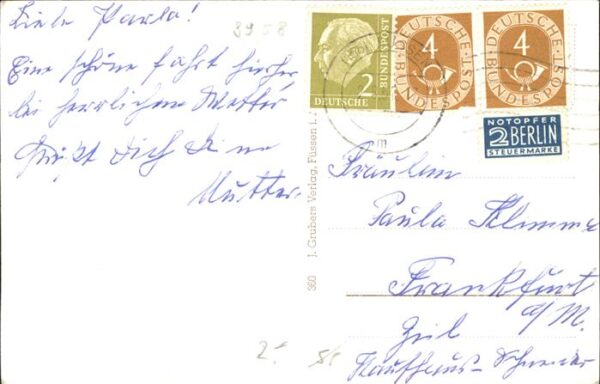 Liebe Paula!
Eine schöne Fahrt hierher,
bei herrlichem Wetter
Grüßt Dich Deine
Mutter.
3958
2
DEUTSCHE
BUNDESPOST
4
DEUTSCHE
BUNDESPOST
4
DEUTSCHE
BUNDESPOST
NOTOPFER
2 BERLIN
STEUERMARKE
360 J. Grubers Verlag, Füssen i.
Fräulein
Paula
Frankfurt
a/M.
Zeil
Kaufhaus-Schneider
2.-